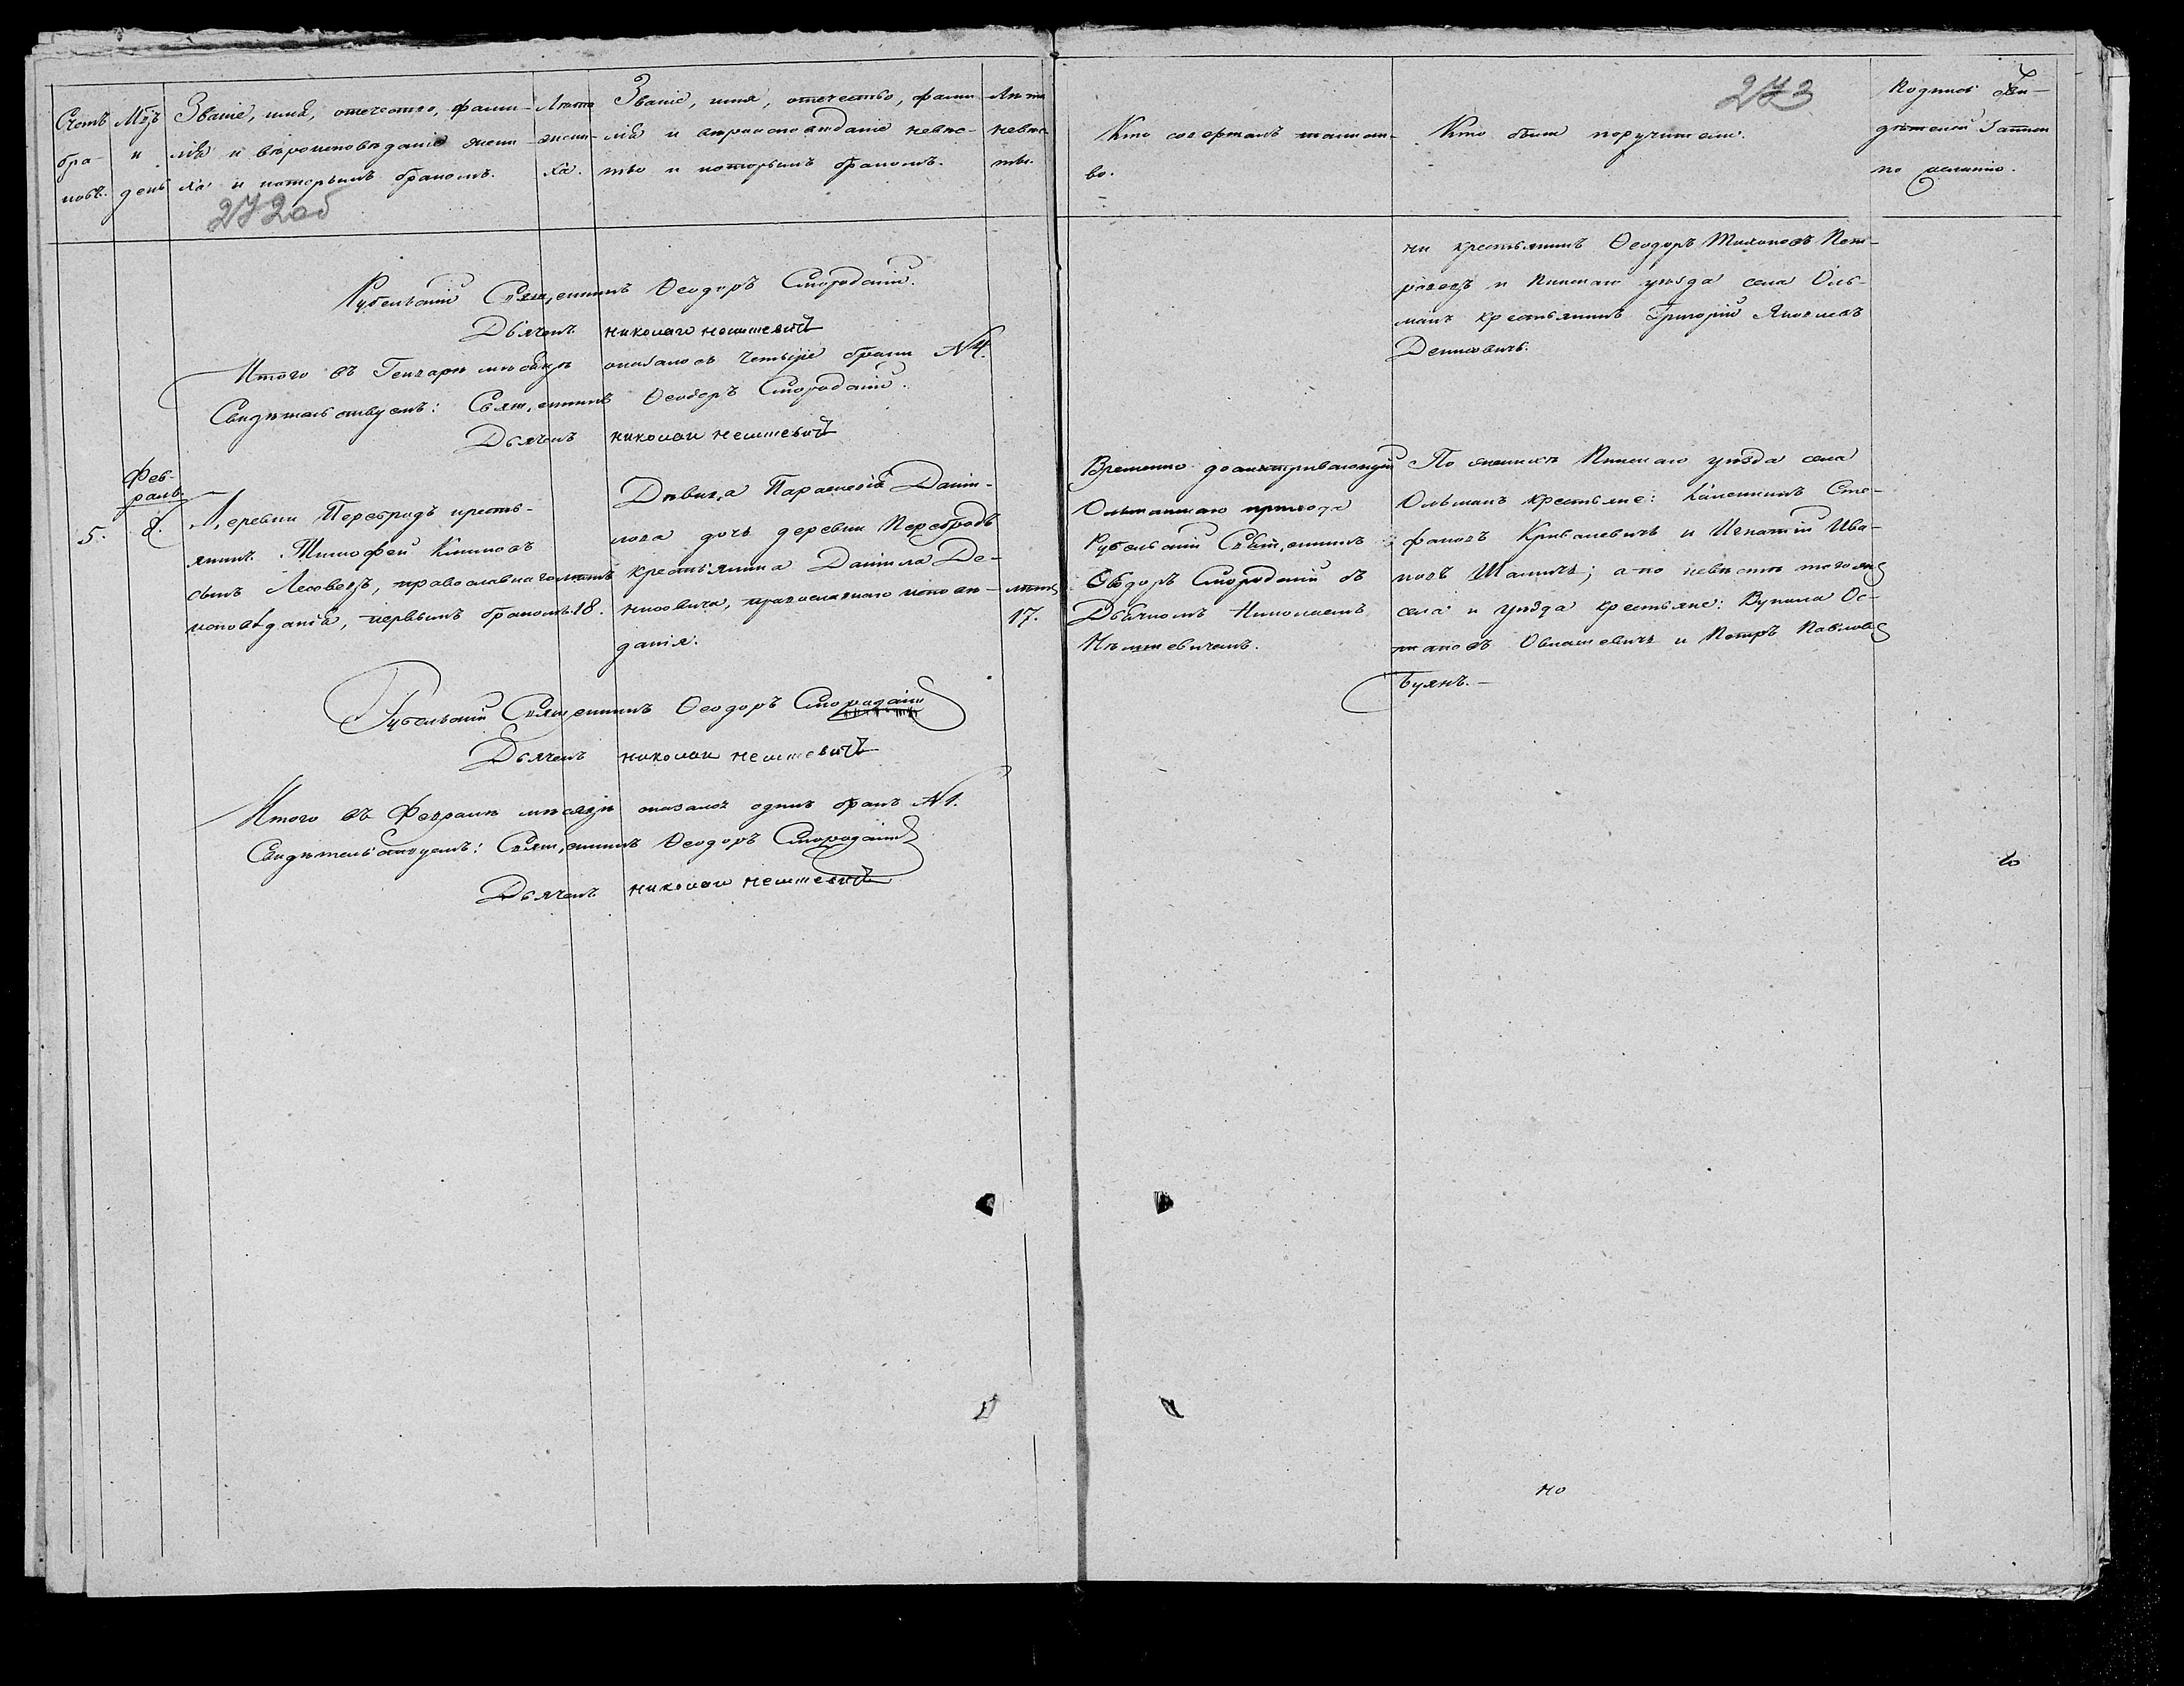 Счетъ бра- ковъ.
Мѣ҃ъ и день
Званіе, имя, отечество, фами-
лія и вѣроисповѣданіе жени-
ха и которымъ бракомъ.
Лѣта жени- ха.
Званіе, имя, отечество, фами
лія и вѣроисповѣданіе невѣс-
ты и которымъ бракомъ.
Лѣта невѣс- ты.
272об
Рубельскій Священникъ Ѳеодоръ Смородскій.
Дьячекъ николай нешшевичъ
Итого въ Генваръ мѣсяцѣ оказалось четыре брака №4.
Свидѣтельствуемъ: Священникъ Ѳеодоръ Смородскій.
Дьячекъ николай нешшевичъ
5.
Фев-
раль.
8.
Деревни Перебродъ кресть-
янинъ Тимофей Климовъ
сынъ Лесовецъ, православнаго
исповѣданія, первымъ бракомъ.
лѣтъ
18.
Дѣвица Параскевія Даніи-
лова дочь деревни Перебродъ
крестьянина Даніила Де-
нисовича, православнаго исповѣ-
данія.
лѣтъ
17.
Рубельскій Священникъ Ѳеодоръ Смородскій
Дьячекъ николай нешшевичъ
Итого въ Февралѣ мѣсяцѣ оказался одинъ бракъ №1.
Свидѣтельствуемъ: Священникъ Ѳеодоръ Смородскій
Дьячекъ николай нешшевичъ
273
Кто совершалъ таинст-
во.
Кто были поручители.
Подпись Сви-
дѣтелей Записи
по желанію.
ки крестьянинъ Ѳеодоръ Тихоновъ Пет-
ровецъ и Пинскаго уѣзда села Оль-
манъ крестьянинъ Григорій Яковлевъ
Денисовичъ.
Временно досматривающій
Ольманскаго прихода
Рубельскій Священникъ
Ѳеодоръ Смородскій съ
Дьячкомъ Николаемъ
Нешшевичемъ.
По женихѣ Пинскаго уѣзда села
Ольманъ крестьяне: Калениикъ Сте-
фановъ Криваневичъ и Игнатій Ива-
новъ Шаничъ; а по невѣстѣ того же
села и уѣзда крестьяне: Вукила Ос-
таповъ Овлашевичъ и Петръ Павловъ
Буякъ.-
но